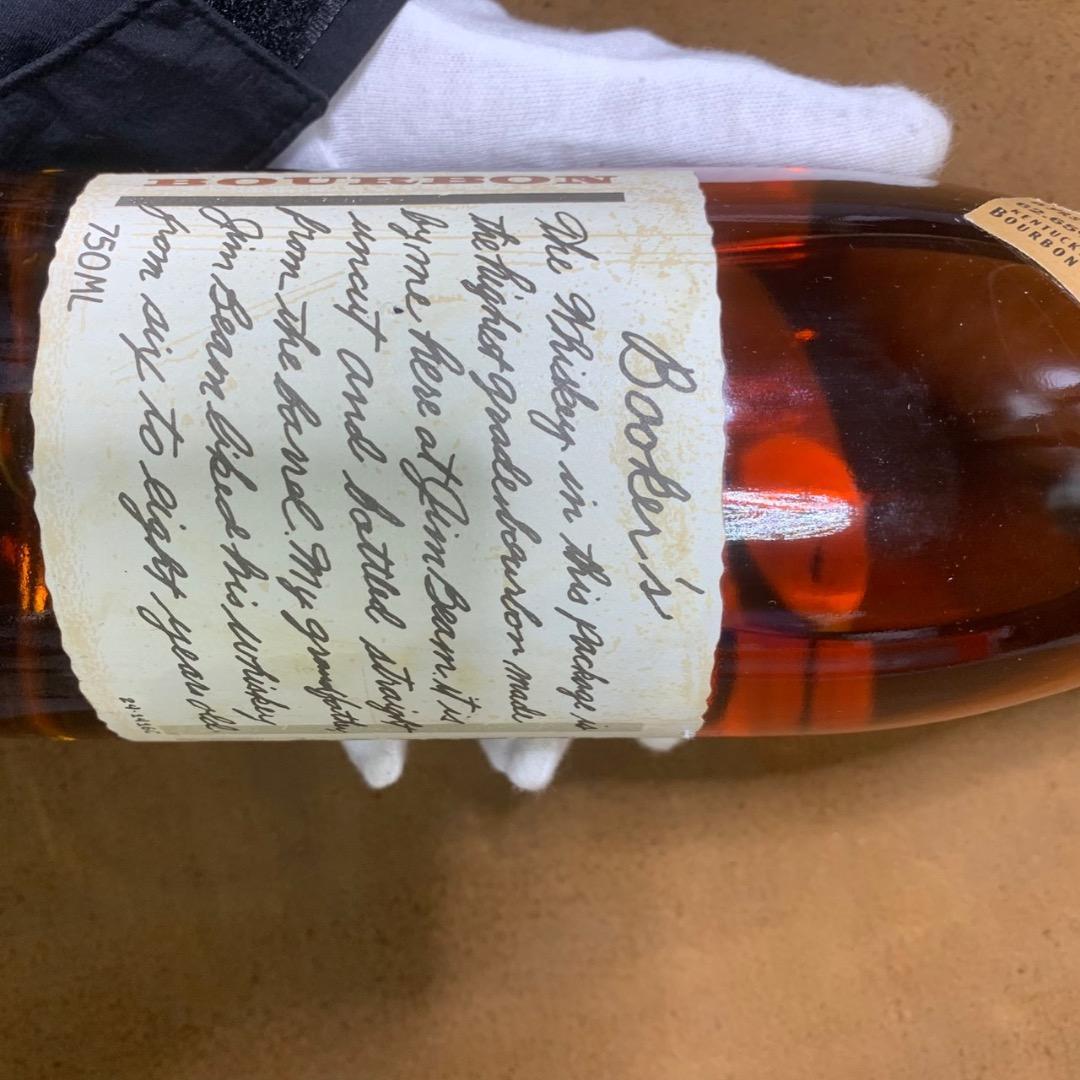 BOURBON
Booker's
The Whiskey in this package is
the highest grade bourbon made
by me, here at Jim Beam. It is
uncut and bottled straight
from the barrel. My grandfather
Jim Beam liked his whisky
from six to eight years old
750ML
KENTUCK
BOURBON